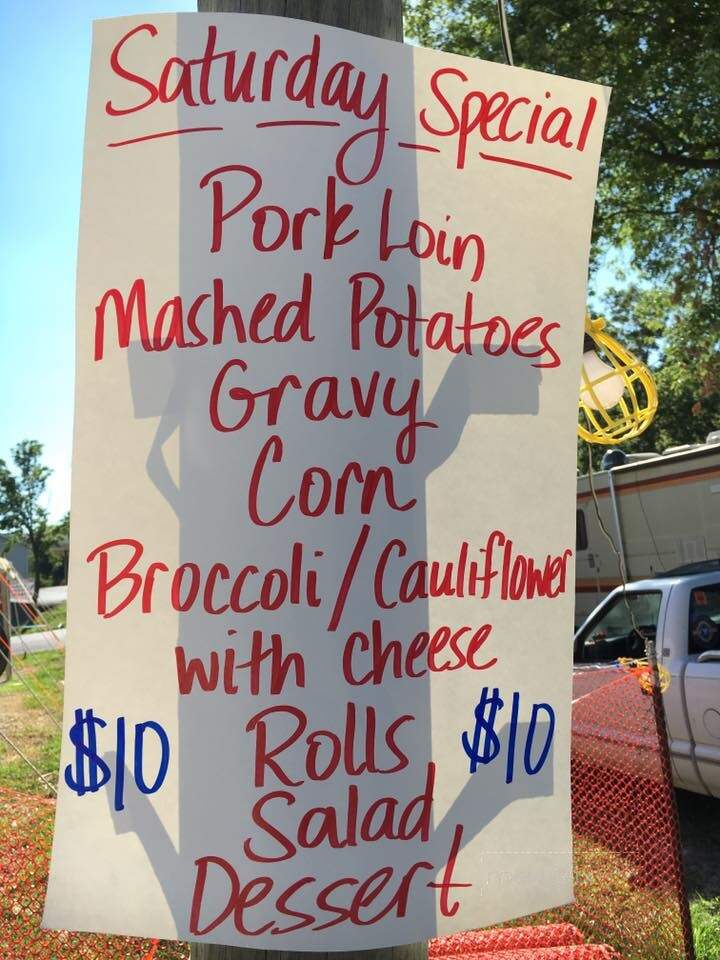 Saturday Special
Pork Loin
Mashed Potatoes
Gravy
Corn
Broccoli/Cauliflower
with cheese
$10 Rolls $10
Salad
Dessert